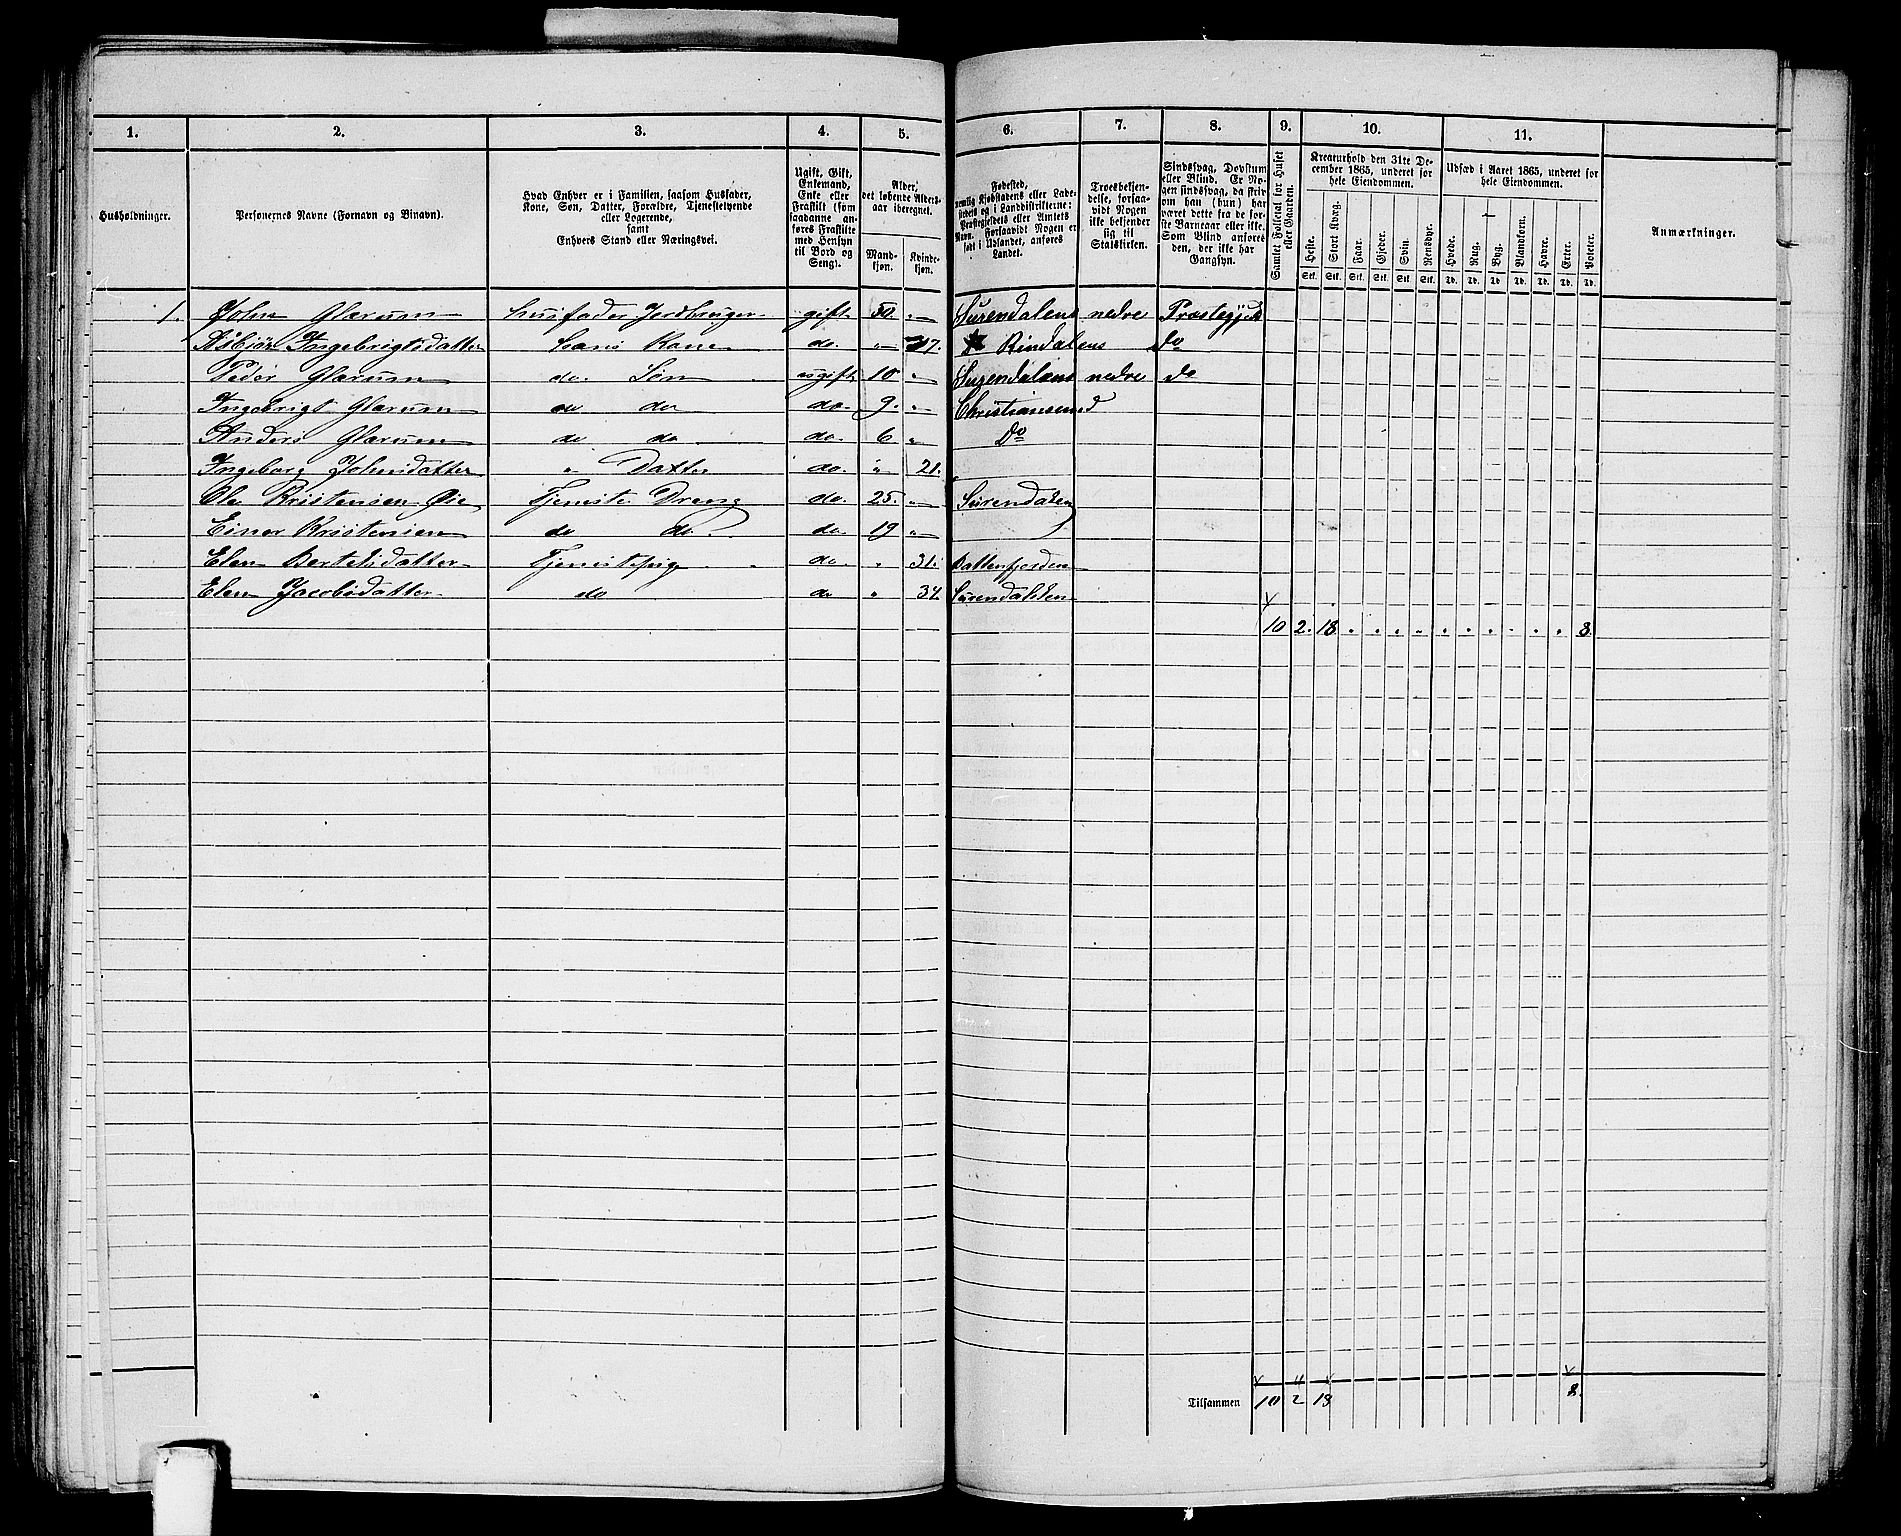 1. 2. 3. 4. 5. 6. 7. 8. 9. 10. 11.
Husholdninger.
Personernes Navne (Fornavn og Binavn).
Hvad Enhver er i Familien, saasom Husfader,
Kone, Søn, Datter, Forældre, Tjenestetyende
eller Logerende,
samt
Enhvers Stand eller Næringsvei.
Ugift, Gift,
Enkemand,
Enke eller
Fraskilt (som
saadanne an-
føres Fraskilte
med Hensyn
til Bord og
Seng).
Alder,
det løbende Alders-
aar iberegnet.
Mand-
kjøn.
Kvinde-
kjøn.
Fødested,
nemlig Kjøbstadens eller Lade-
stedets og i Landdistrikterne:
Præstegjeldets eller Amtets
Navn. Forsaavidt Nogen er
født i Udlandet, anføres
Landet.
Troesbekjen-
delse, forsaa-
vidt Nogen
ikke bekjender
sig til
Statskirken.
Sindssvag, Døvstum
eller Blind. Er No-
gen sindssvag, da skriv
om han (hun) har
været dette fra de før-
ste Barneaar eller ikke.
Som Blind anføres
den, der ikke har
Gangsyn.
Samlet Folketal for Huset
eller Gaarden.
Kreaturhold den 31te De-
cember 1865, underet for
hele Eiendommen.
Heste. Stort Kvæg. Faar. Gjeder. Svin. Rensdyr.
Stk. Stk. Stk. Stk. Stk. Stk.
Udsæd i Aaret 1865, underet for
hele Eiendommen.
Hvede. Rug. Byg. Blandkorn. Havre. Erter. Poteter.
Td. Td. Td. Td. Td. Td. Td.
Anmærkninger.
1. John Glærum Husfader Jordbruger gift 50. " Surendalens nedre Præstegjeld
Åsbjør Ingebrigtsdatter Hans Kone do. " 47. Rindalens Do
Peder Glærum do. Søn ugift 10 " Surendalens nedre do
Ingebrigt Glærum do do do. 9. " Christiansund
Anders Glærum do do do. 6 " Do
Ingeborg Johnsdatter " Datter do. " 21.
Ole Kristensen Øie Tjeneste Dreng do. 25. " Surendalen
Einar Kristensen do do. do. 19 "
Elen Bertelsdatter Tjenestepige do. " 31. Battenfjorden
Elen Jacobsdatter do do " 34 Surendalen
10 2. 18 " " " " " " " " " " 8.
Tilsammen 10 2 18 8.